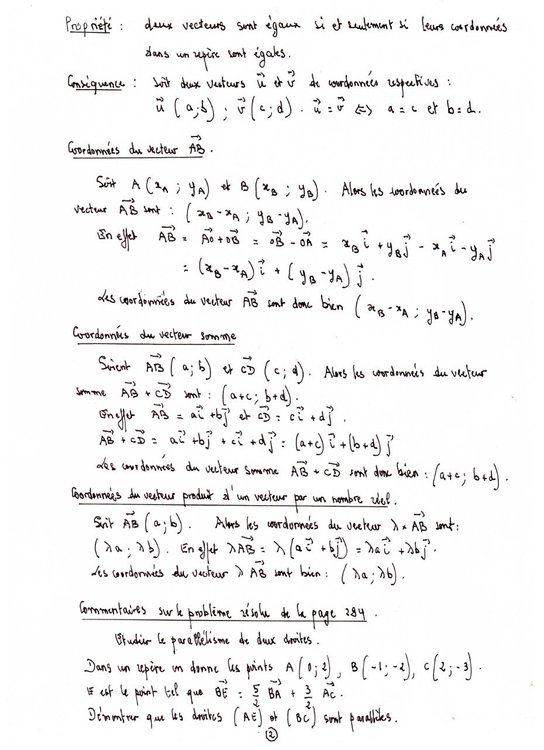 Propriété : deux vecteurs sont égaux si et seulement si leurs coordonnées
dans un repère sont égales.
Conséquence : Soit deux vecteurs u⃗ et v⃗ de coordonnées respectives :
u⃗ (a;b) ; v⃗ (c;d). u⃗ = v⃗ ⇔ a = c et b = d.
Coordonnées du vecteur AB⃗.
Soit A (x_A ; y_A) et B (x_B ; y_B). Alors les coordonnées du
vecteur AB⃗ sont : (x_B - x_A ; y_B - y_A).
En effet AB⃗ = AO⃗ + OB⃗ = OB⃗ - OA⃗ = x_B i⃗ + y_B j⃗ - x_A i⃗ - y_A j⃗
= (x_B - x_A) i⃗ + (y_B - y_A) j⃗.
Les coordonnées du vecteur AB⃗ sont donc bien (x_B - x_A ; y_B - y_A).
Coordonnées du vecteur somme
Soient AB⃗ (a;b) et CD⃗ (c;d). Alors les coordonnées du vecteur
somme AB⃗ + CD⃗ sont : (a+c; b+d).
En effet AB⃗ = ai⃗ + bj⃗ et CD⃗ = ci⃗ + dj⃗.
AB⃗ + CD⃗ = ai⃗ + bj⃗ + ci⃗ + dj⃗ = (a+c) i⃗ + (b+d) j⃗
Les coordonnées du vecteur somme AB⃗ + CD⃗ sont donc bien : (a+c; b+d).
Coordonnées du vecteur produit d'un vecteur par un nombre réel.
Soit AB⃗ (a;b). Alors les coordonnées du vecteur λ × AB⃗ sont :
(λa ; λb). En effet λAB⃗ = λ(ai⃗ + bj⃗) = λai⃗ + λbj⃗.
Les coordonnées du vecteur λ AB⃗ sont bien : (λa ; λb).
Commentaires sur le problème résolu de la page 284.
Etudier le parallélisme de deux droites.
Dans un repère on donne les points A (0;2), B(-1;-2), C(2;-3).
E est le point tel que BE⃗ = 5/2 BA⃗ + 3/2 AC⃗.
Démontrer que les droites (AE) et (BC) sont parallèles.
②